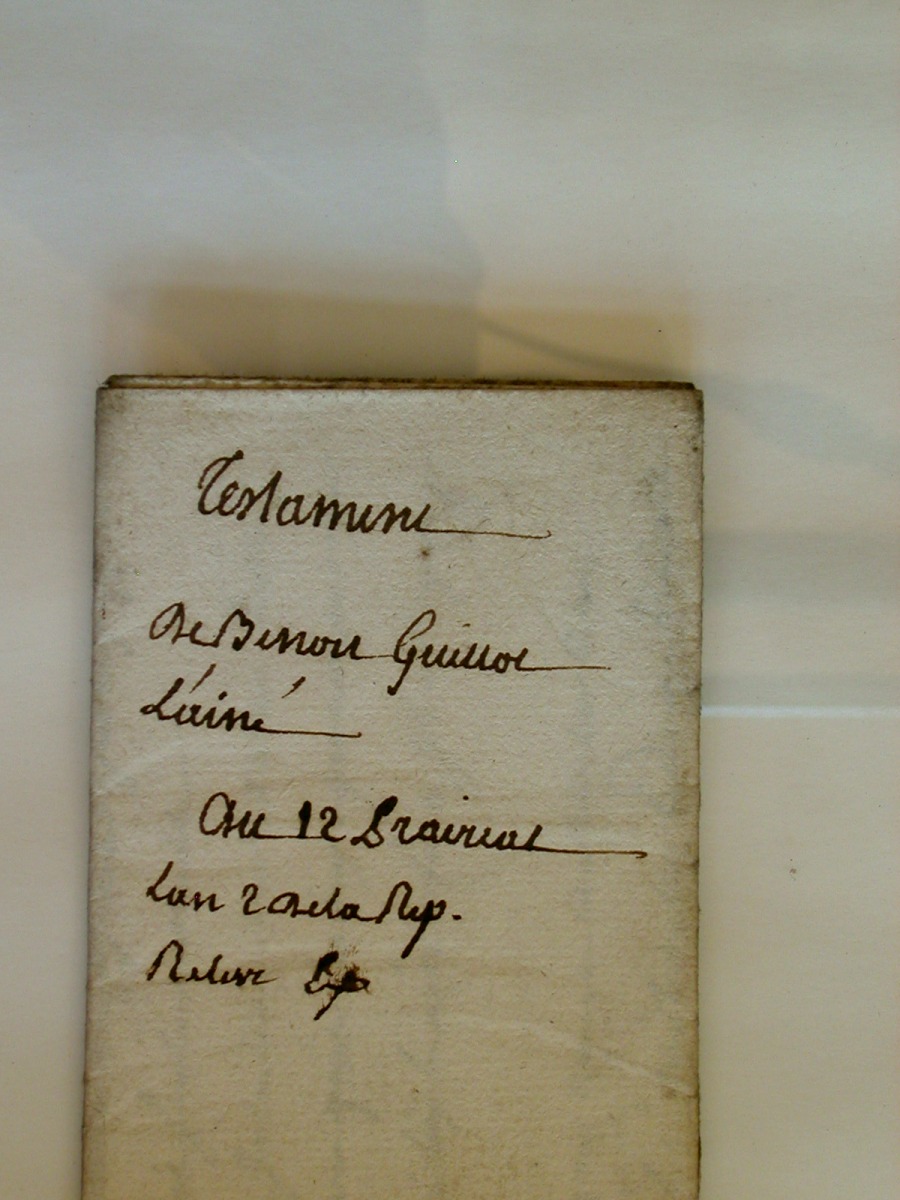 Testament
de Benoit Guillot
L'ainé
du 12 Prairial
Lan 2 de la Rep.